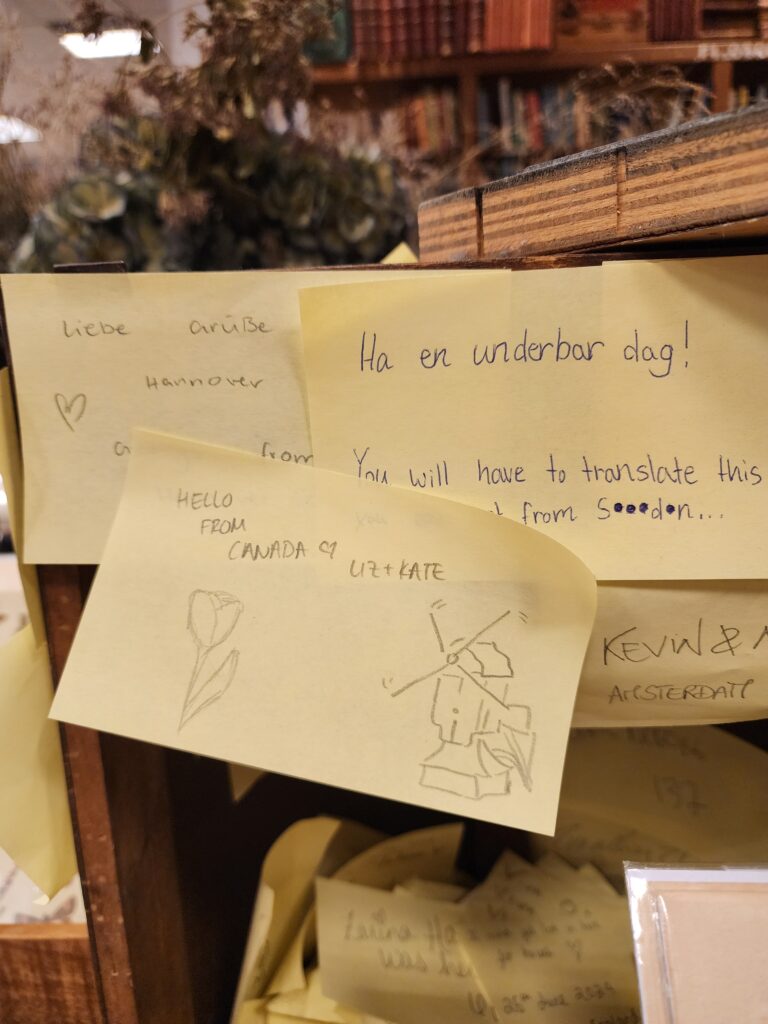 Liebe Grüße
Hannover
from
Ha en underbar dag!
You will have to translate this
from S●●●d●n...
HELLO
FROM
CANADA ♡
LIZ + KATE
KEVIN &
AMSTERDAM
137
was
25th June 2024